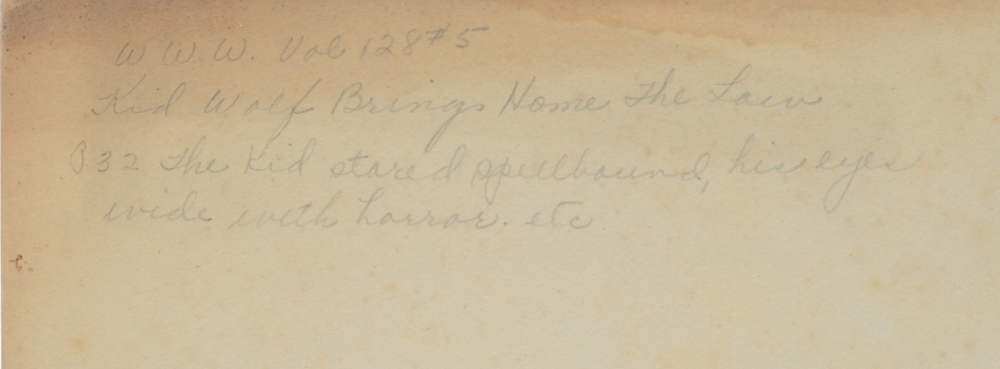 W W.W. Vol 128 #5
Kid Wolf Brings Home The Law
P.32 The Kid stared spellbound, his eyes
wide with horror. etc